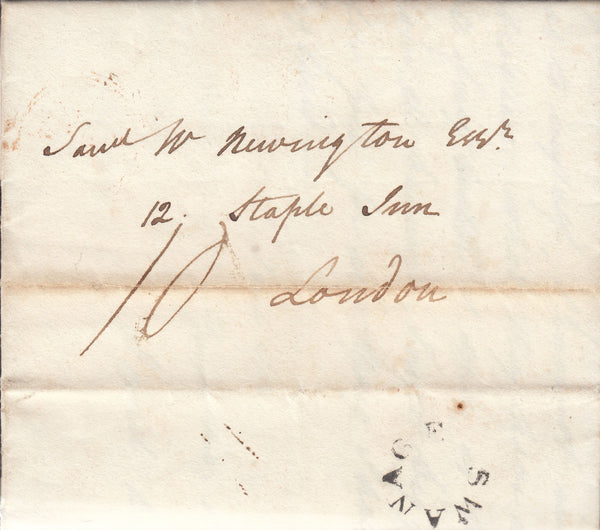 Saml W Newington Esqr.
12. Staple Inn
10
London
SWANAGE